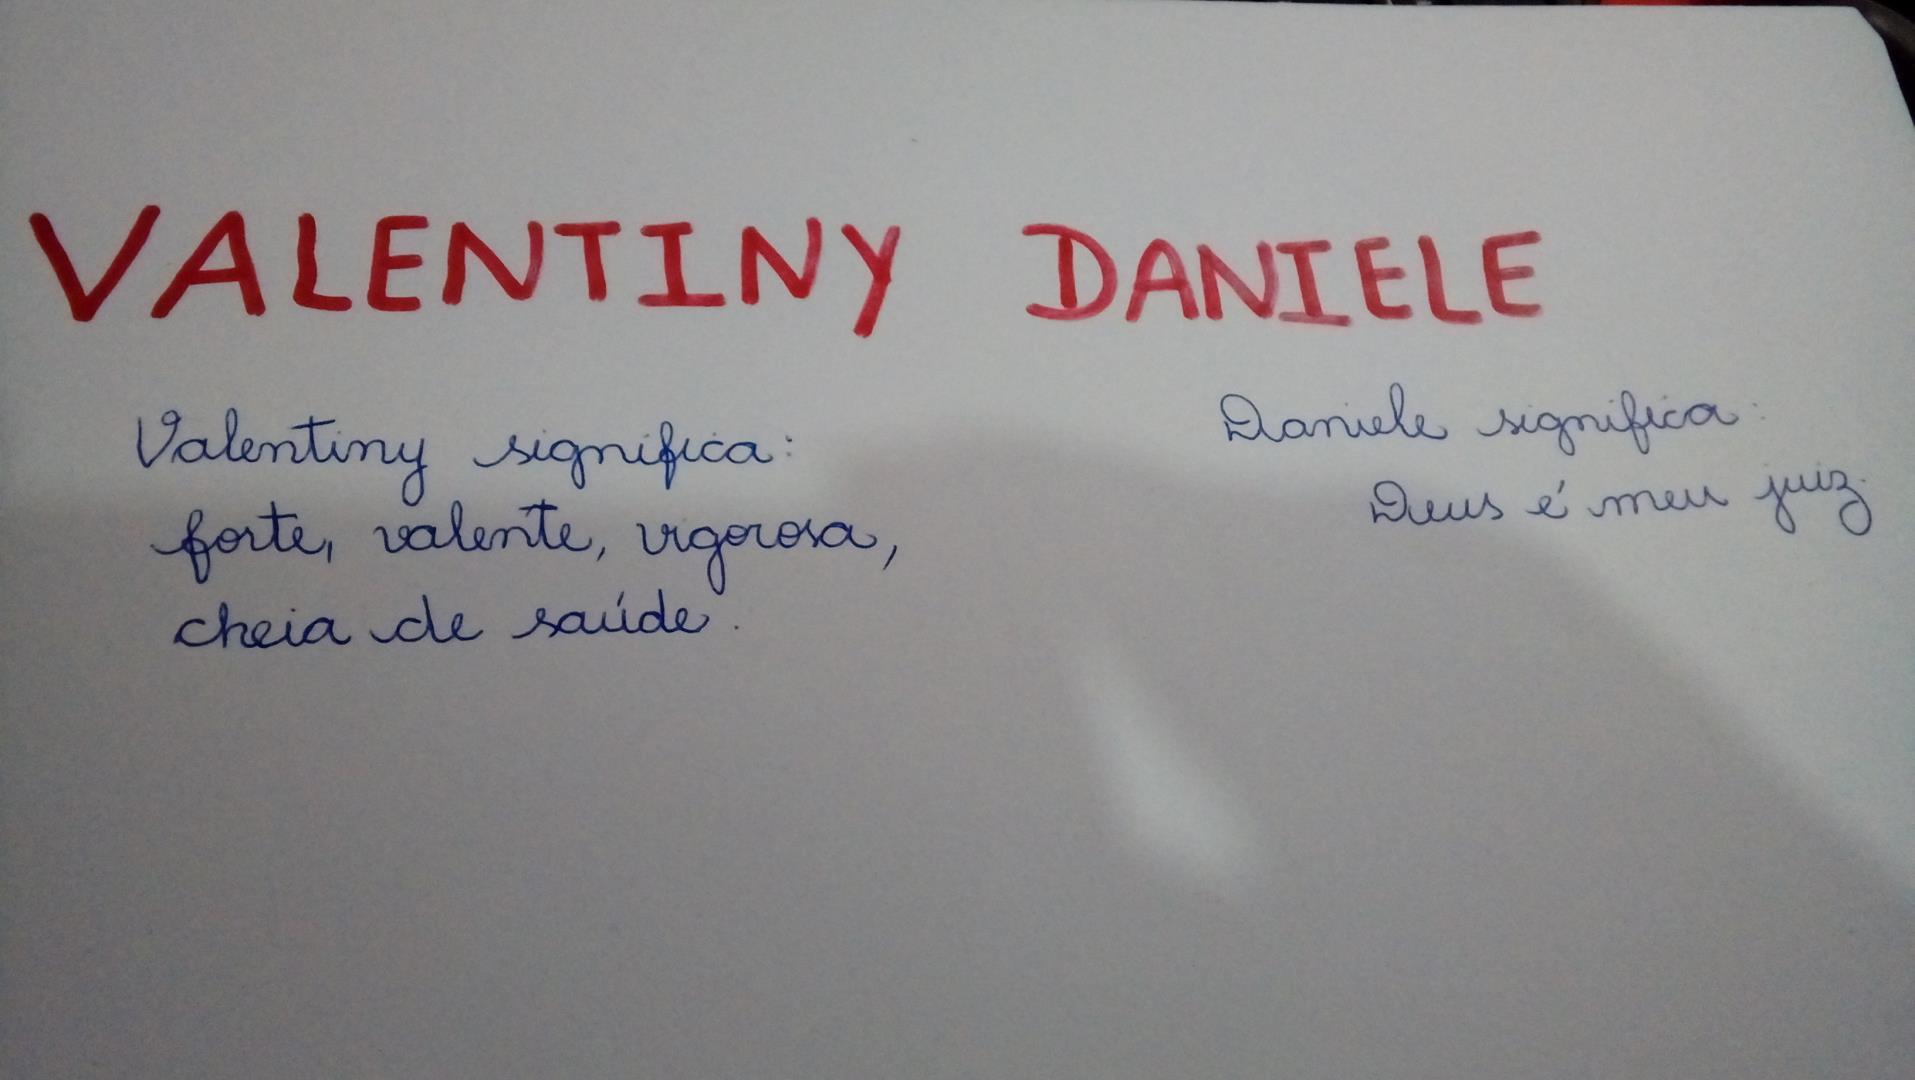 VALENTINY DANIELE
Valentiny significa:
forte, valente, vigorosa,
cheia de saúde.
Daniele significa:
Deus é meu juiz.